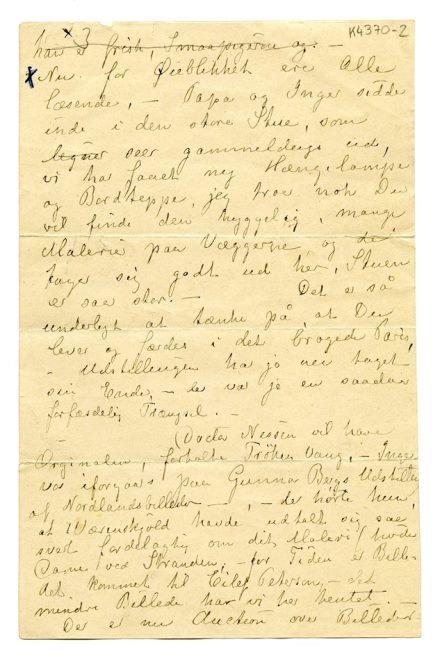 × 3
K4370-2
han er frisk, Smaapigerne og. —
× Nu for Øieblikket ere Alle
læsende, — Papa og Inger sidder
inde i den store Stue, som
ligner seer gammeldags ud,
vi har faaet ny Hænge-lampe
og Bordteppe, jeg troer nok Du
vil finde den hyggelig, mange
Malerie paa Væggerne, og de
tager sig godt ud her, Stuen
er saa stor. — Det er så
underligt at tænke på at Du
lever og færdes i det brogede Paris,
— Udstillingen har jo nu taget
sin Ende, — der var jo en saadan
forfærdelig Trængsel. —
— Doctor Nessen vil have
Orginalen, fortalte Frøken Vang, — Inger
var iforgaars paa Gunnar Bergs Udstilling
af Nordlandsbilleder —, — der hørte hun,
at Wærenskjold havde udtalt sig saa
svært fordelagtig om dit Maleri (hvide
Dame ved Stranden, — for Tiden er Bille-
det kommet til Eilef Peterson, — det
mindre Billede har vi her hentet. —
Der er nu Auction over Billeder